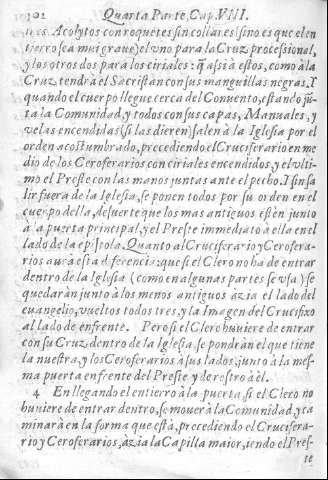 102 Quarta Parte, Cap. VIII.
tres Acolytos con roquetes sin collares (sino es que el en
tierro sea muigrave) el vno para la Cruz processional,
y los otros dos para los ciriales: q̃ a si à estos, como à la
Cruz tendrà el Sacristan con sus manguillas negras. Y
quando el cuerpo llegue cerca del Convento, estando jũ
ta la Comunidad, y todos con sus capas, Manuales, y
velas encendidas (si las dieren) salen à la Iglesia por el
orden acostumbrado, precediendo el Cruciferario en me
dio de los Ceroferarios con ciriales encendidos, y el vlti-
mo el Preste con las manos juntas ante el pecho. I sin sa
lir fuera de la Iglesia, se ponen todos por su orden en el
cuerpo della, de suerte que los mas antiguos estèn junto
à la puerta principal, y el Preste immediato à ella en el
lado de la epistola. Quanto al Cruciferario y Cerofera-
rios avrà esta diferencia: que si el Clero no ha de entrar
dentro de la Iglesia (como en algunas partes se vsa) se
quedaràn junto à los menos antiguos àzia el lado del
euangelio, vueltos todos tres, y la Imagen del Crucifixo
al lado de enfrente. Pero si el Clero huviere de entrar
con su Cruz dentro de la Iglesia, se pondràn el que tiene
la nuestra, y los Ceroferarios à sus lados, junto à la mes-
ma puerta enfrente del Preste y de rostro à èl.
4 En llegando el entierro à la puerta, si el Clero no
huviere de entrar dentro, se mouerà la Comunidad, y ca
minarà en la forma que està, precediendo el Crucifera-
rio y Ceroferarios, àzia la Capilla maior, iendo el Pres-
te